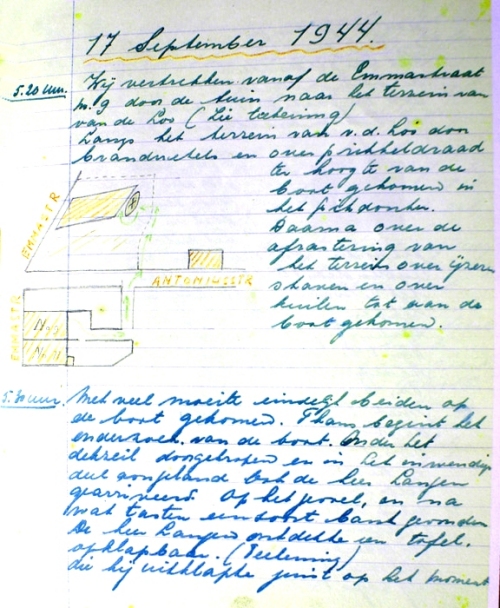 17 September 1944.
5.20 uur. Wij vertrekken vanaf de Emmastraat
n.g door de tuin naar het terrein van
van de Loo (zie tekening)
Langs het terrein van v.d. Loo door
brandnetels en over prikkeldraad
ter hoogte van de
boot gekomen in
het pikdonker.
Daarna over de
afrastering van
het terrein over ijzeren
staven en over
kuilen tot aan de
boot gekomen.
EMMASTR
ANTONIUSSTR
EMMASTR
5.30 uur. Met veel moeite eindelijk beiden op
de boot gekomen. Thans begint het
onderzoek van de boot. Onder het
dekzeil doorgekropen en in het inwendige
deel aangeland tot de heer Langen
gearriveerd. Op het gevoel, en na
wat tasten een soort bank gevonden
De heer Langen ontdekte een tafel.
opklapbaar. (Teekening)
die hij uitklapte juist op het moment